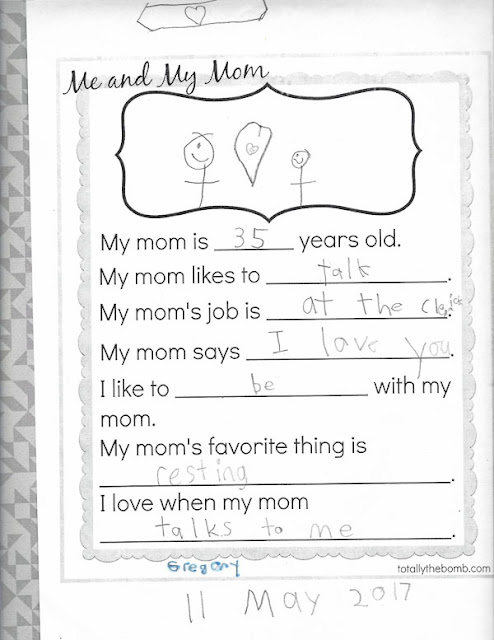 Me and My Mom
My mom is 35 years old.
My mom likes to talk.
My mom's job is at the
My mom says I love you.
I like to be with my
mom.
My mom's favorite thing is
resting.
I love when my mom
talks to me.
totallythebomb.com
Gregory
11 May 2017